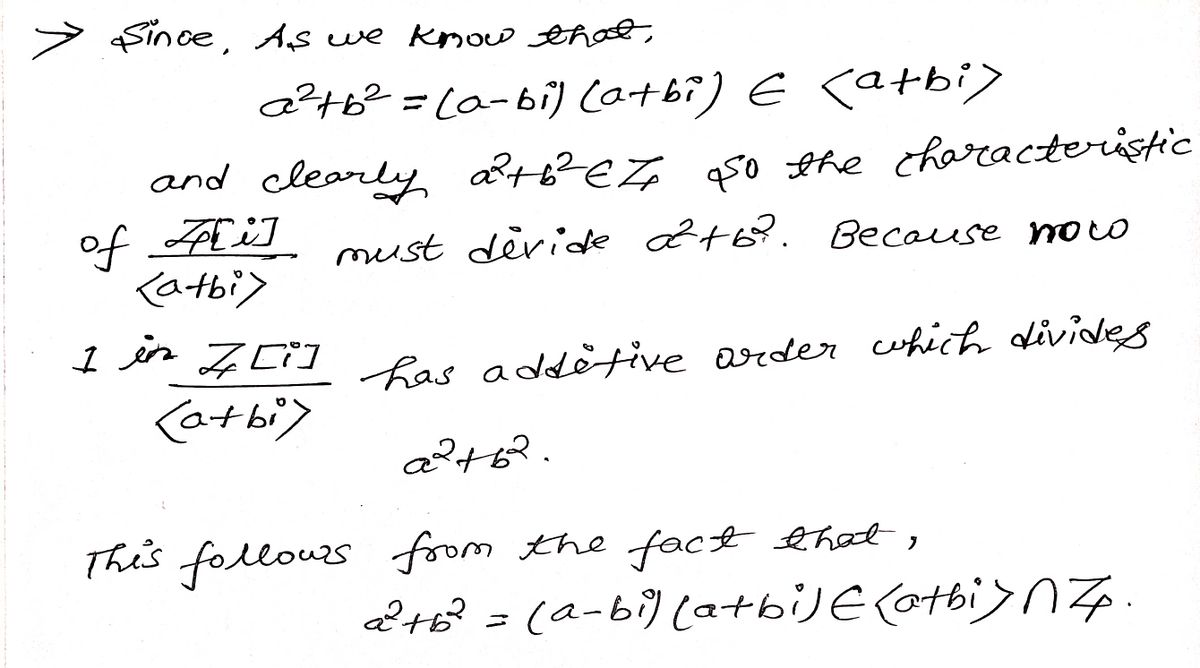 → Since, As we know that,
a²+b² = (a-bi) (a+bi) ∈ <a+bi>
and clearly a²+b² ∈ Z so the characteristic
of Z[i]/<a+bi> must divide a²+b². Because now
1 in Z[i]/<a+bi> has additive order which divides
a²+b².
This follows from the fact that,
a²+b² = (a-bi) (a+bi) ∈ <a+bi> ∩ Z.